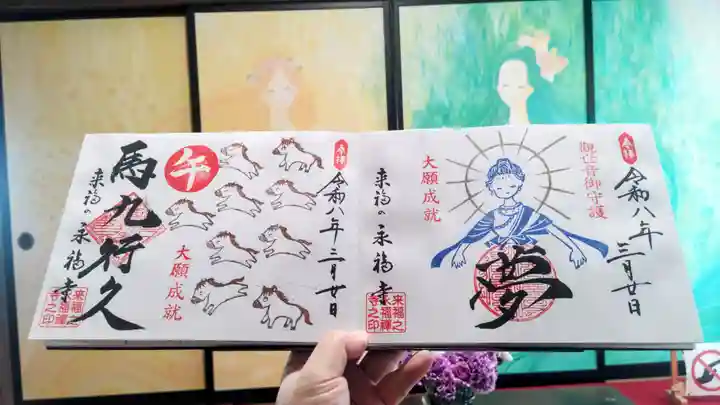 奉拝
令和八年三月廿日
観世音御守護
夢
大願成就
来福の永福寺
来福之
永福禅
寺之印
奉拝
令和八年三月廿日
午
大願成就
馬九行久
来福の永福寺
来福之
永福禅
寺之印